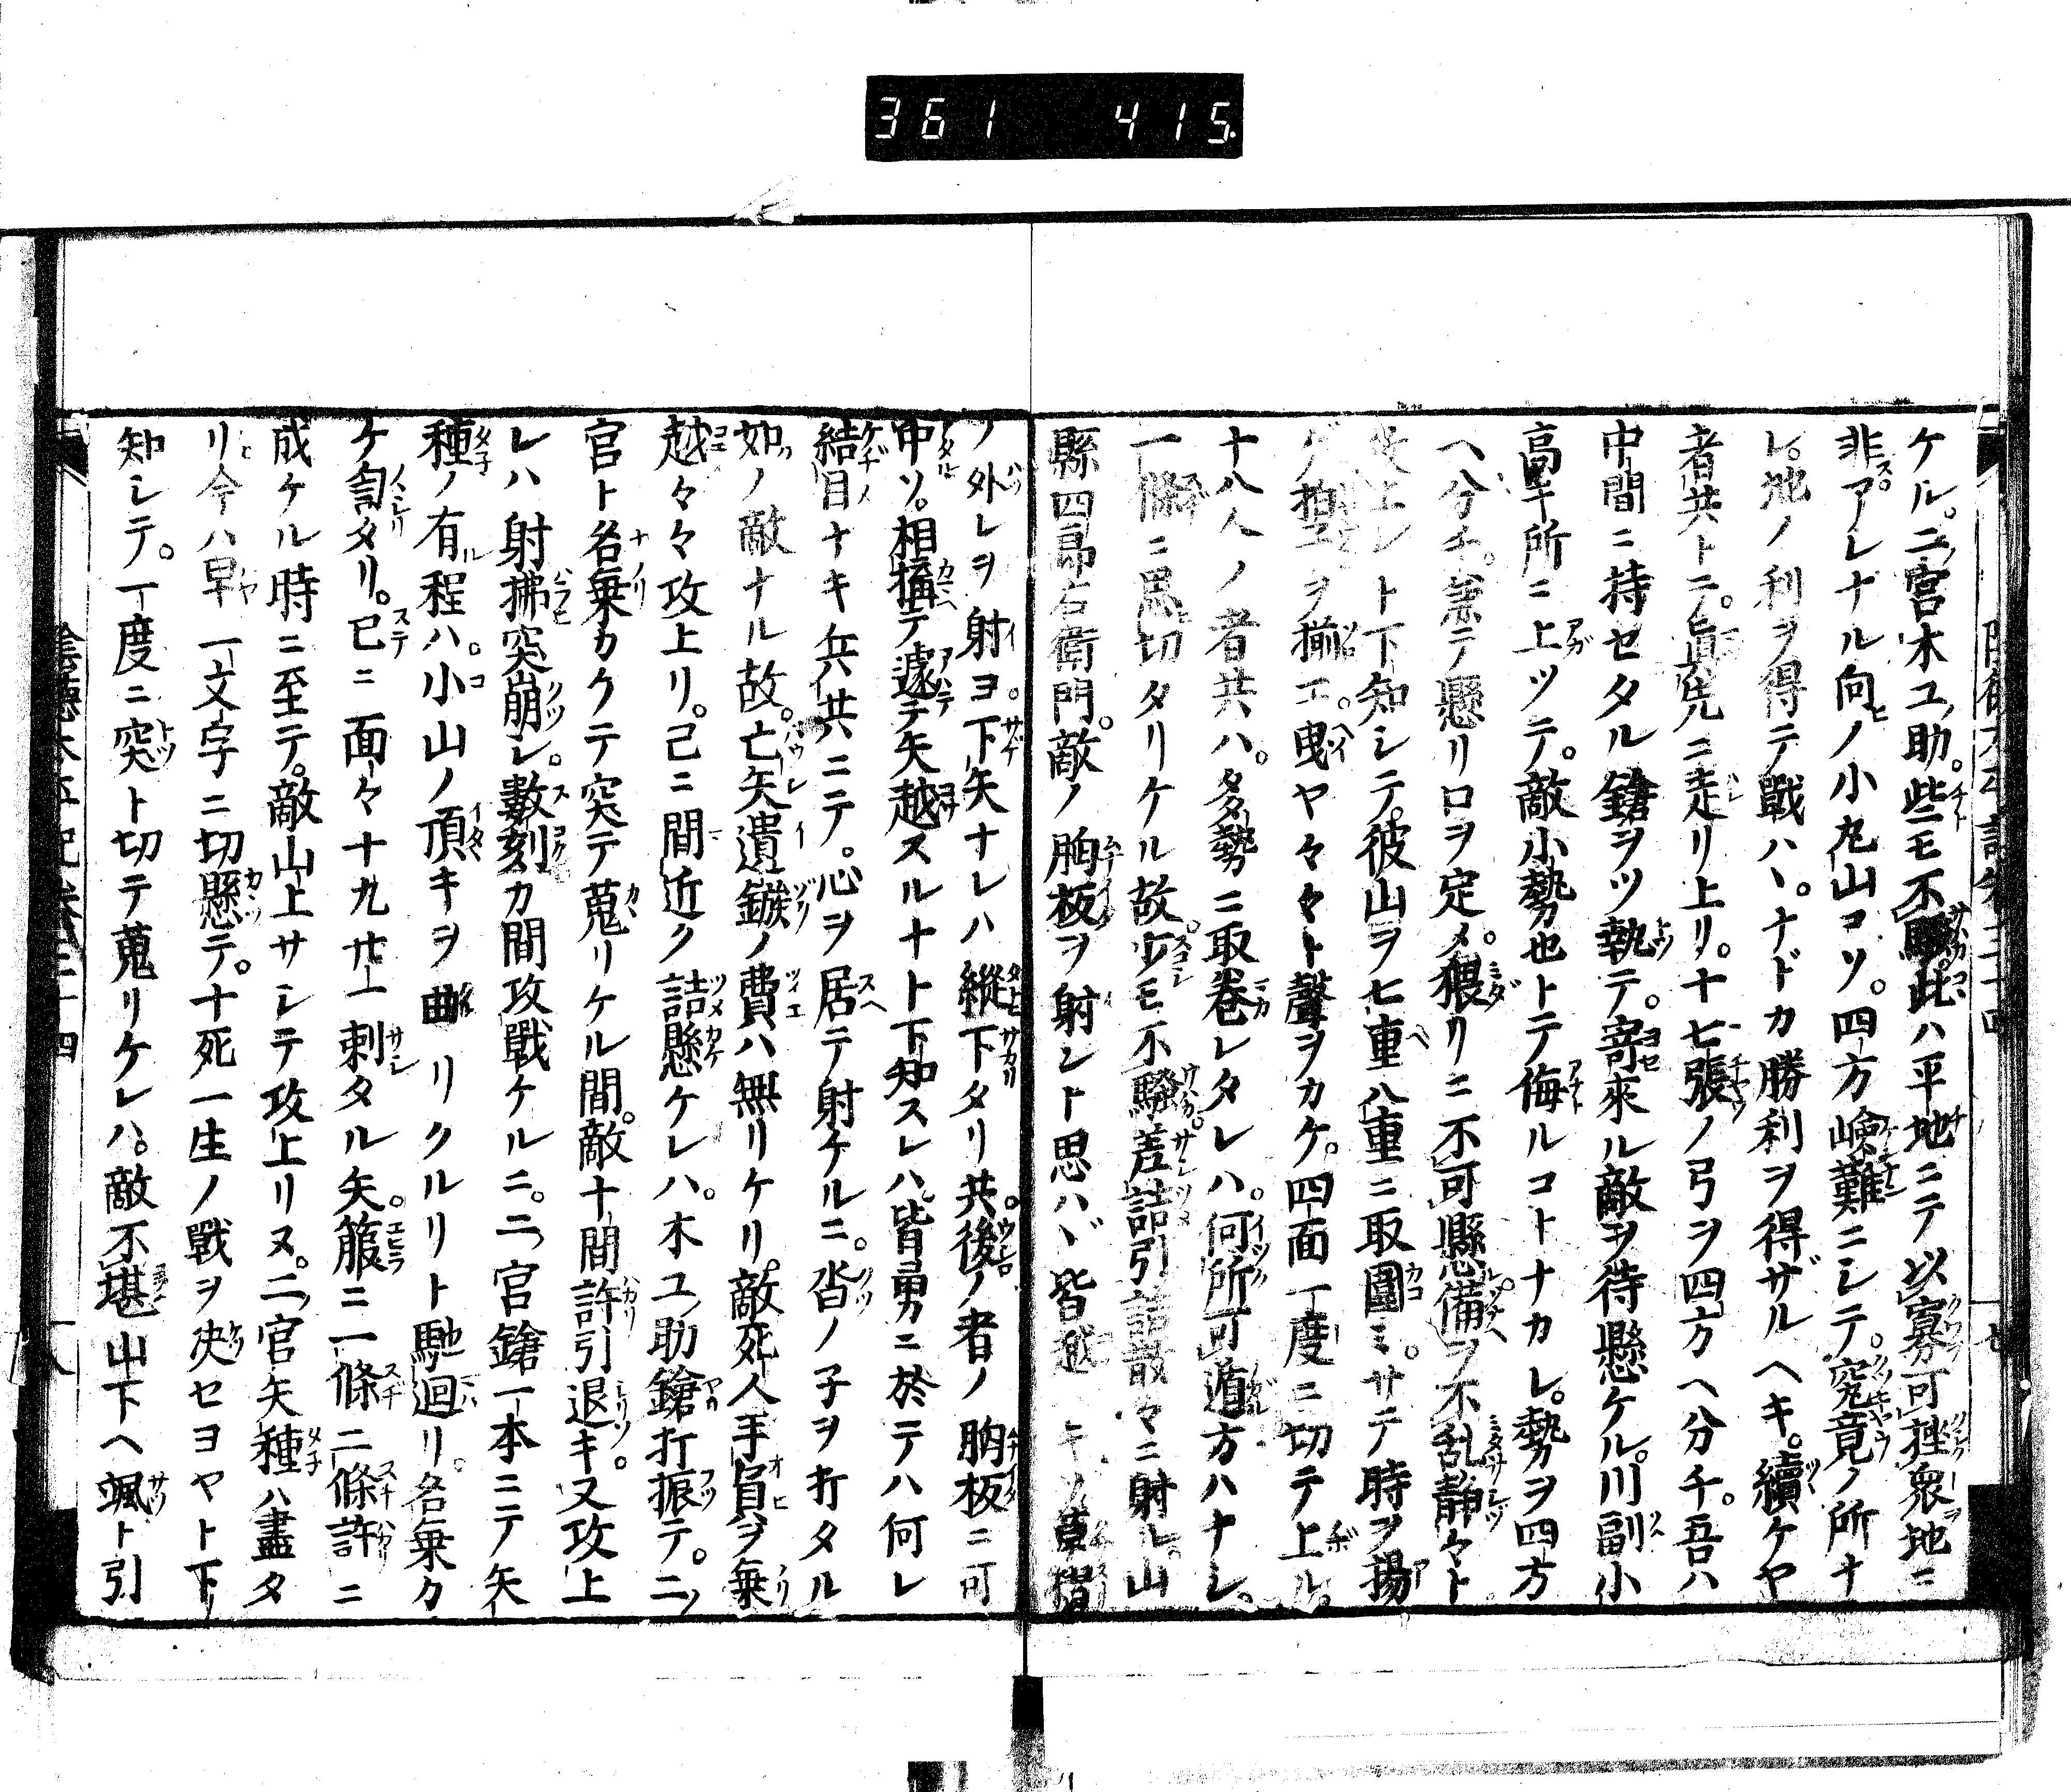 361 415
ケル。二宮木工助。些モ不騒。此ハ平地ニテ以寡可挫衆地ニ
非アレナル向ノ小丸山コソ。四方嶮難ニシテ。究竟ノ所ナ
レ。地ノ利ヲ得テ戰ハヽ。ナドカ勝利ヲ得ザルヘキ。續ケヤ
者共トニ。眞先ニ走リ上リ。十七張ノ弓ヲ四方ヘ分チ。吾ハ
中間ニ持セタル鎗ヲツ執テ。寄來ル敵ヲ待懸ケル。川副小
高キ所ニ上ツテ。敵小勢也トテ侮ルコトナカレ。勢ヲ四方
ヘ分チ。兼テ懸リ口ヲ定メ。猥リニ不可懸。備ヲ不乱静々ト
上レト下知シテ。彼山ヲ七重八重ニ取圍ミ。サテ時ヲ揚
ゲ拍子ヲ揃エ。曳ヤ々々ト聲ヲカケ。四面一度ニ切テ上ル。
十八人ノ者共ハ。多勢ニ取巻レタレハ。何所可遁方ハナシ。
一條ニ思切タリケル故。少モ不騒。差詰引詰散々ニ射ル。山
縣四郎右衛門。敵ノ胸板ヲ射ント思ハヾ皆越
ノ外レヲ射ヨ。下矢ナレハ縱下タリ共。後ノ者ノ胸板ニ可
中ソ。相搆テ遽テ矢越スルナト下知スレハ。皆勇ニ於テハ何レ
結目ナキ兵共ニテ。心ヲ居テ射ケルニ。沓ノ子ヲ打タル
如ノ敵ナル故。亡矢遺鏃ノ費ハ無リケリ。敵死人手負ヲ乗
越々々攻上リ。已ニ間近ク詰懸ケレハ。木工助鎗打振テ。二
宮ト名乗カケテ突テ蒐リケル間。敵十間許引退キ。又攻上
レハ射拂突崩シ。數刻カ間攻戰ケルニ。二宮鎗一本ニテ矢
種ノ有程ハ。小山ノ頂キヲ曲リクルリト馳廻リ。名乗カ
ケ訇タリ。已ニ面々十九廿一刺タル矢。箙ニ一條二條許ニ
成ケル時ニ至テ。敵山上サシテ攻上リヌ。二宮矢種ハ盡タ
リ今ハ早一文字ニ切懸テ。十死一生ノ戰ヲ决セヨヤト下
知シテ。一度ニ突ト切テ蒐リケレハ。敵不堪山下ヘ颯ト引